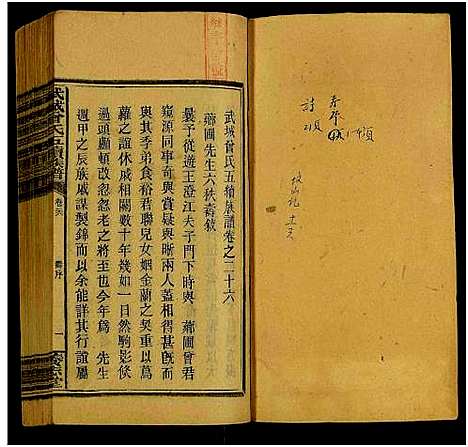 武城曾氏五續族譜卷之二十六
蘅圃先生六秩壽敘
曩予從王澄江夫子門下時與 蘅圃曾君
窺源同事奇與賞疑與晰兩人蓋相得甚既而
與其季弟食裕君聯兒女姻金蘭之契重以蔦
蘿之誼休戚相關數十年幾如一日然駒影倏
過頭顱頓改忽忽老之將至也今年為 先生
週甲之辰族戚謀製錦而以余能詳其行誼屬
武城曾氏五續族譜
壽序
一
壽序
詩